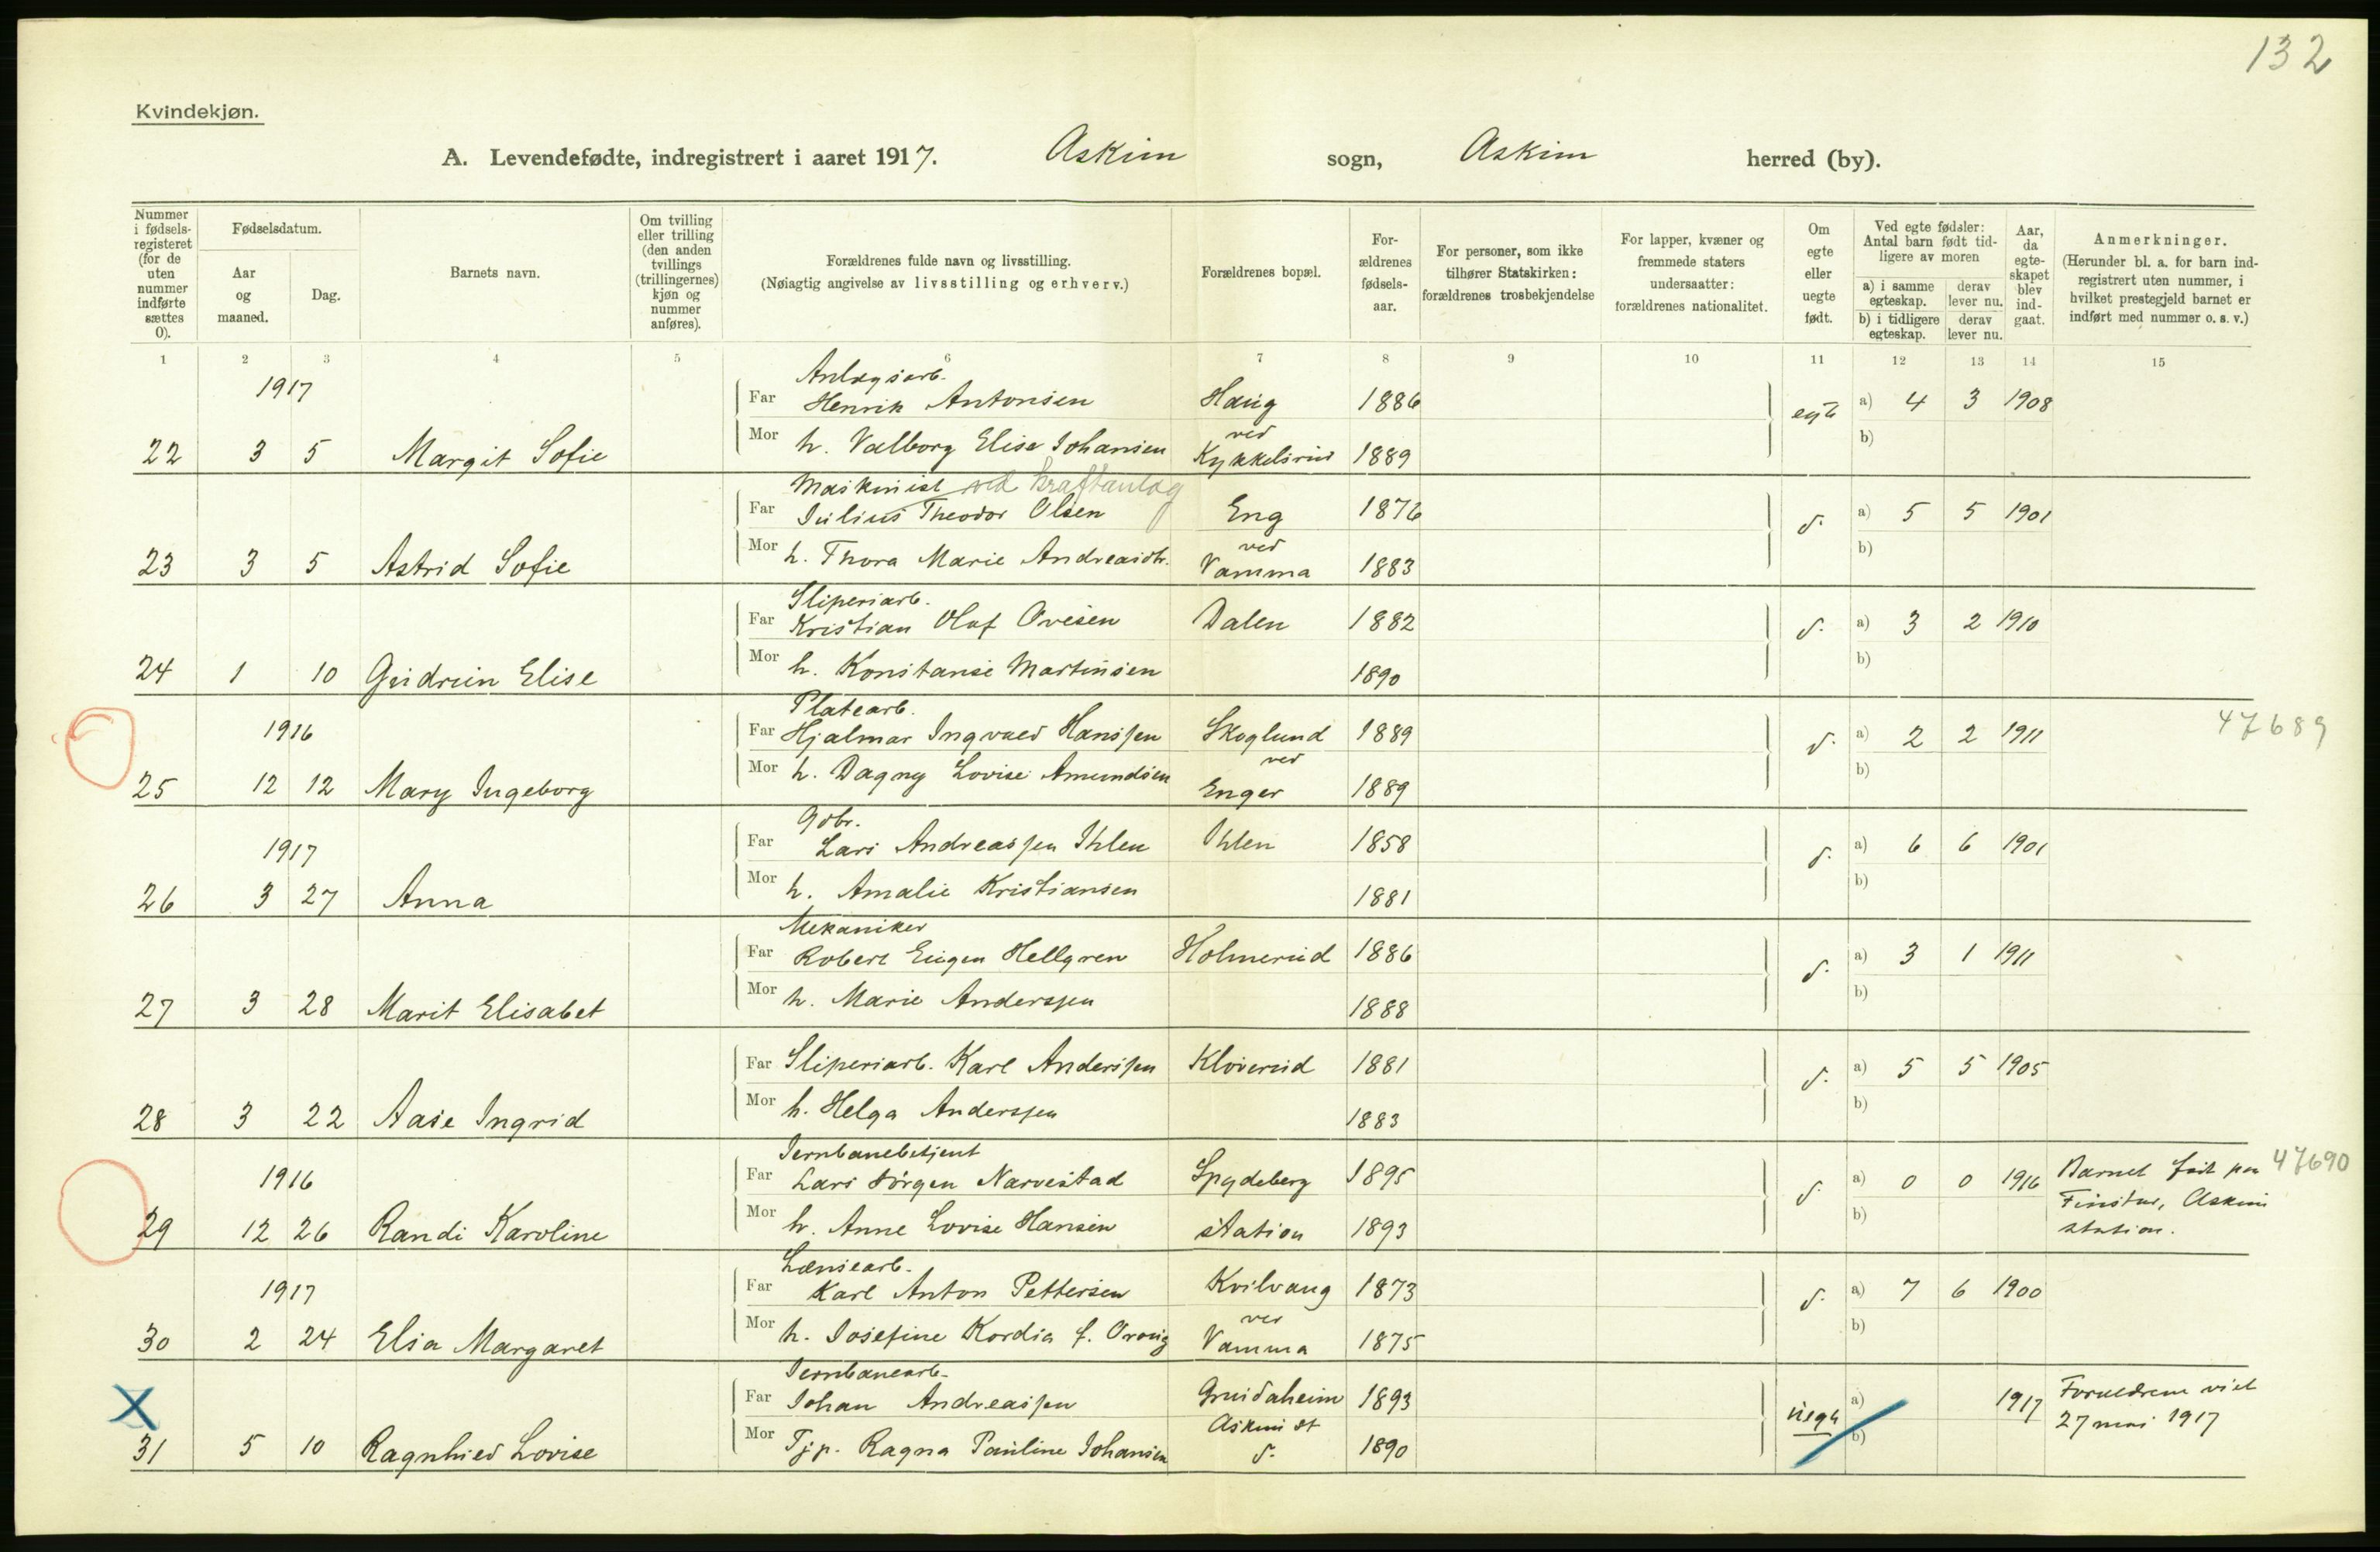 132
Kvindekjøn.
A. Levendefødte, indregistrert i aaret 1917. Askim sogn, Askim herred (by).
Nummer i fødsels-registeret (for de uten nummer indførte sættes 0).
Fødselsdatum.
Aar og maaned.
Dag.
Barnets navn.
Om tvilling eller trilling (den anden tvillings (trillingernes) kjøn og nummer anføres).
Forældrenes fulde navn og livsstilling.
(Nøiagtig angivelse av livsstilling og erhverv.)
Forældrenes bopæl.
For-ældrenes fødsels-aar.
For personer, som ikke tilhører Statskirken: forældrenes trosbekjendelse
For lapper, kvæner og fremmede staters undersaatter: forældrenes nationalitet.
Om egte eller uegte født.
Ved egte fødsler: Antal barn født tid-ligere av moren
a) i samme egteskap.
derav lever nu.
b) i tidligere egteskap.
derav lever nu.
Aar, da egte-skapet blev ind-gaat.
Anmerkninger.
(Herunder bl. a. for barn ind-registrert uten nummer, i hvilket prestegjeld barnet er indført med nummer o. s. v.)
1 2 3 4 5 6 7 8 9 10 11 12 13 14 15
1917 Anlægsarb.
Far Henrik Antonsen Haug 1886 egte a) 4 3 1908
22 3 5 Margit Sofie Mor h. Valborg Elise Johansen ved Kykkelsrud 1889 b)
Maskinist ved Kraftanlæg
Far Julius Theodor Olsen Eng 1876 d. a) 5 5 1901
23 3 5 Astrid Sofie Mor h. Thora Marie Andreasdtr. ved Vamma 1883 b)
Sliperiarb.
Far Kristian Olaf Ovesen Dalen 1882 d. a) 3 2 1910
24 1 10 Gudrun Elise Mor h. Konstanse Martinsen 1890 b)
1916 Platearb.
Far Hjalmar Ingvald Hanssen Skoglund 1889 d. a) 2 2 1911 47689
25 12 12 Mary Ingeborg Mor h. Dagny Lovise Amundsen ved Enger 1889 b)
1917 Gdbr.
Far Lars Andreassen Ihlen Ihlen 1858 d. a) 6 6 1901
26 3 27 Anna Mor h. Amalie Kristiansen 1881 b)
Mekaniker
Far Robert Eugen Hellgren Holmerud 1886 d. a) 3 1 1911
27 3 28 Marit Elisabet Mor h. Marie Anderssen 1888 b)
Far Sliperiarb. Karl Anderssen Kløverud 1881 d. a) 5 5 1905
28 3 22 Aase Ingrid Mor h. Helga Anderssen 1883 b)
1916 Jernbanebetjent
Far Lars Jørgen Narvestad Spydeberg 1895 d. a) 0 0 1916 Barnet født paa 47690
29 12 26 Randi Karoline Mor h. Anne Lovise Hansen station 1893 b) Askim station.
1917 Lænsearb.
Far Karl Anton Pettersen Kvilvang 1873 d. a) 7 6 1900
30 2 24 Elsa Margaret Mor h. Josefine Kordia f. ved Vamma 1875 b)
Jernbanearb.
Far Johan Andreassen 1893 uegte a) 1917 Forældrene viet
X Askim st 27 mai 1917
31 5 10 Ragnhild Lovise Mor Tjp. Ragna Pauline Johansen d. 1890 b)